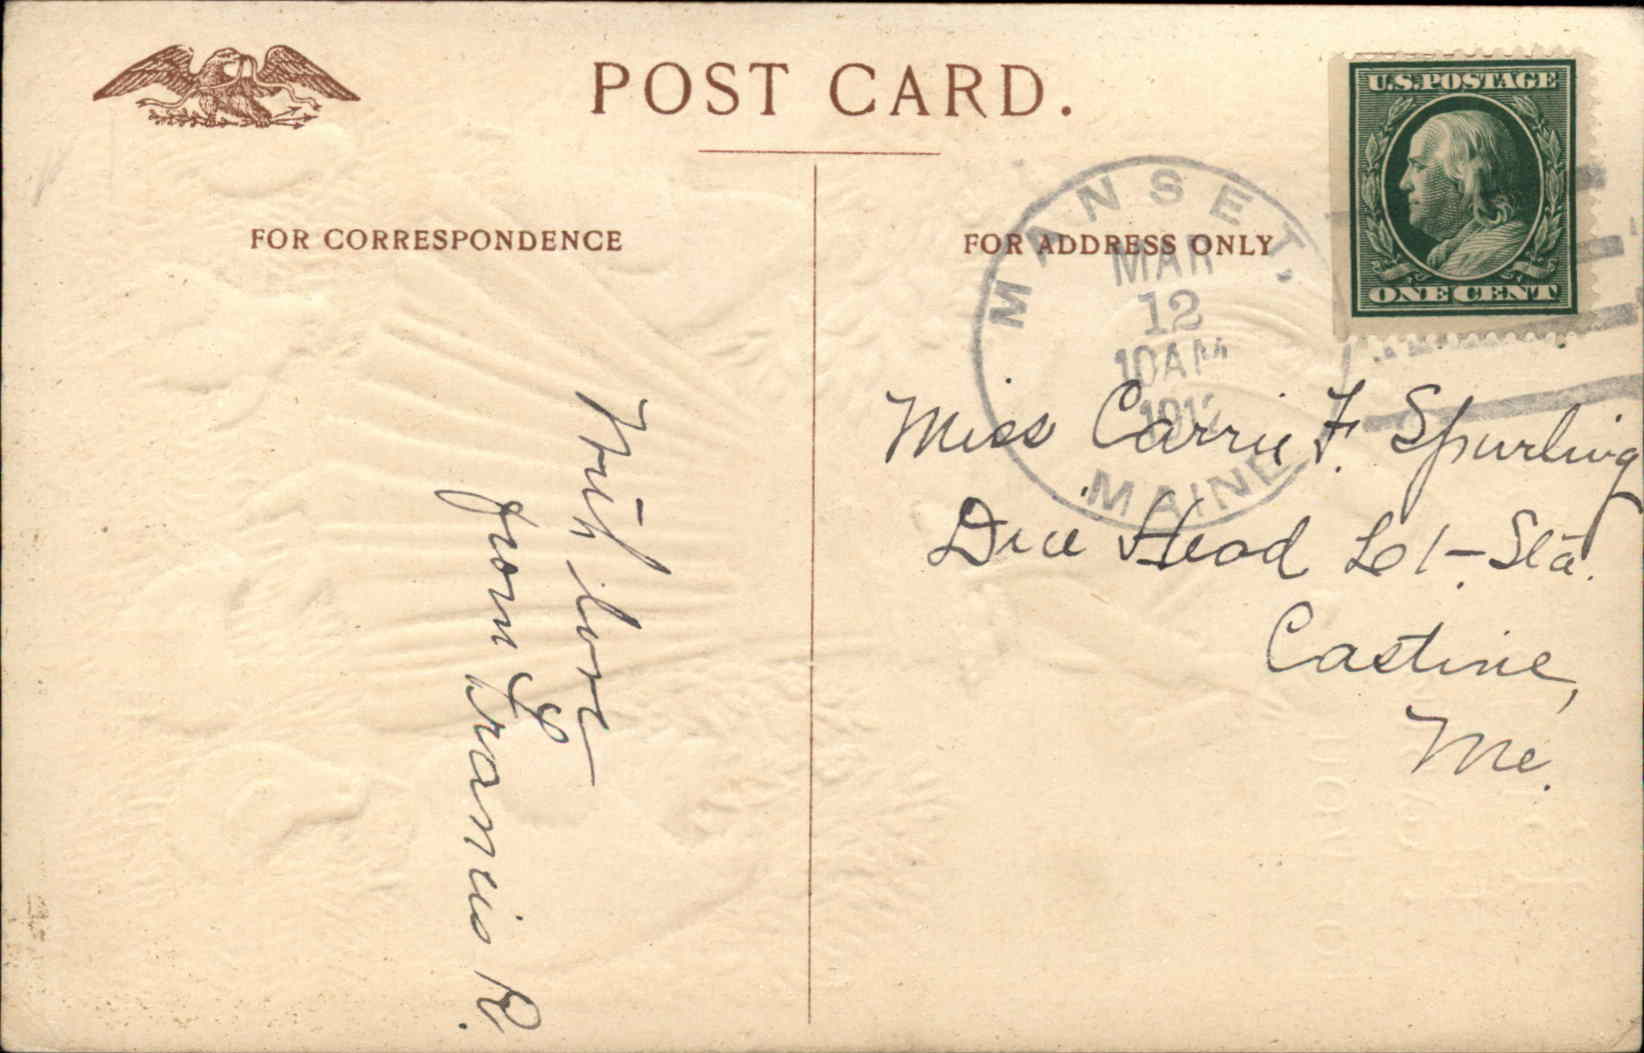 POST CARD.
FOR CORRESPONDENCE
FOR ADDRESS ONLY
U.S. POSTAGE
ONE CENT
MANSET,
MAR
12
10AM
1912
MAINE
Miss Carrie F. Spurling
Dice Head Lt-Sta.
Castine,
Me.
With love
from Francis R.